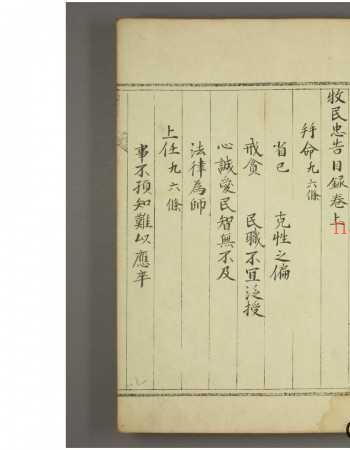 牧民忠告目錄卷上
拜命凡六條
省己 克性之偏
戒貪 民職不宜泛授
心誠愛民智無不及
法律為師
上任凡六條
事不預知難以應卒